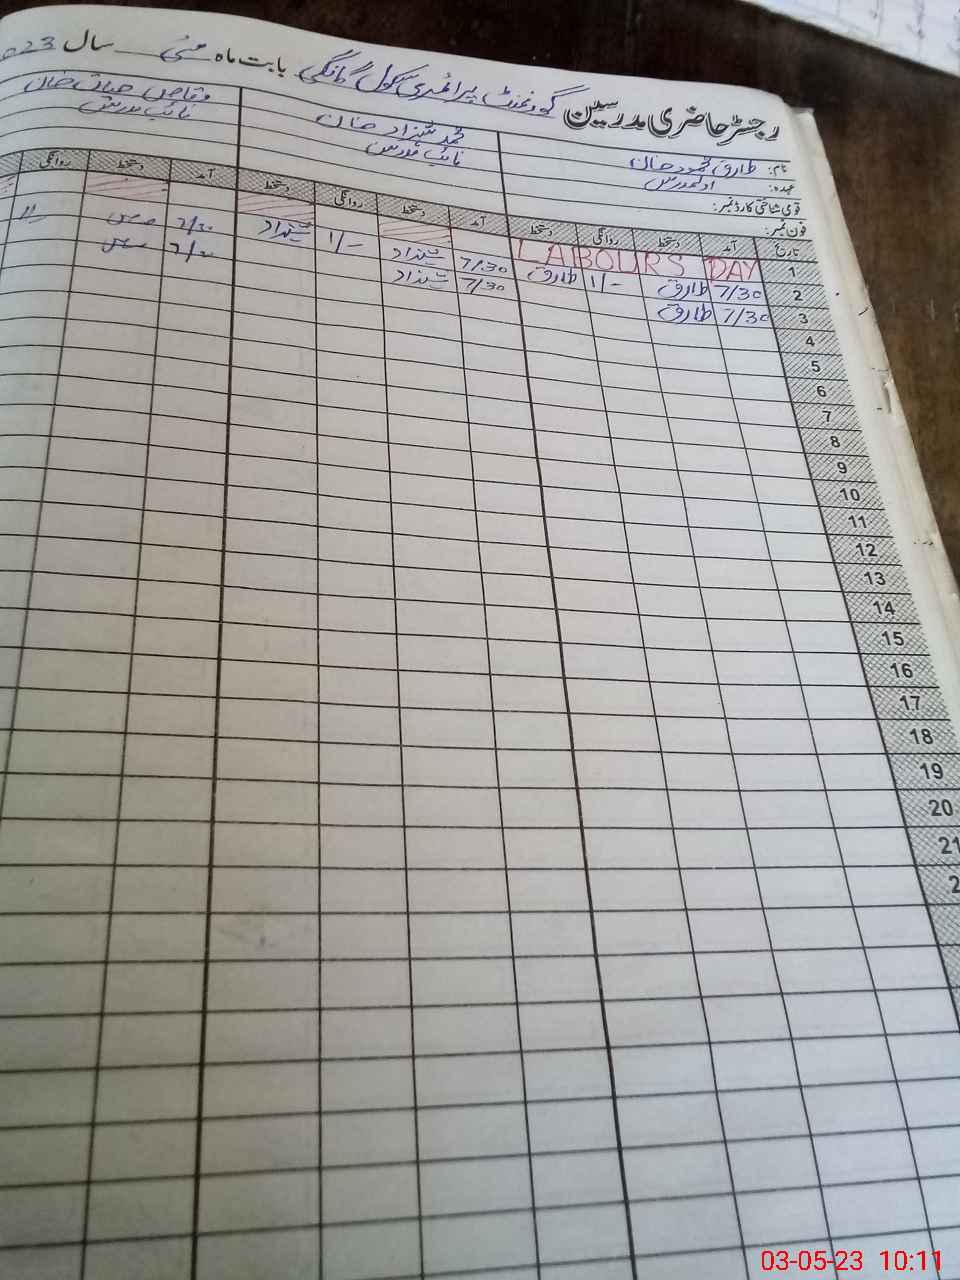 رجسٹر حاضری مدرسین گورنمنٹ پرائمری سکول بابت ماہ مئی سال 023
نام: طارق محمود خان محمد شہزاد خان وقاص حیات خان
عہدہ: اول مدرس نائب مدرس نائب مدرس
قومی شناختی کارڈ نمبر:
فون نمبر:
تاریخ آمد دستخط روانگی دستخط آمد دستخط روانگی دستخط آمد دستخط روانگی
1 LABOURS DAY
2 7/30 طارق 1/- طارق 7/30 شہزاد 1/- شہزاد 7/30
3 7/30 طارق 7/30 شہزاد 7/30
4
5
6
7
8
9
10
11
12
13
14
15
16
17
18
19
20
21
2
03-05-23 10:11